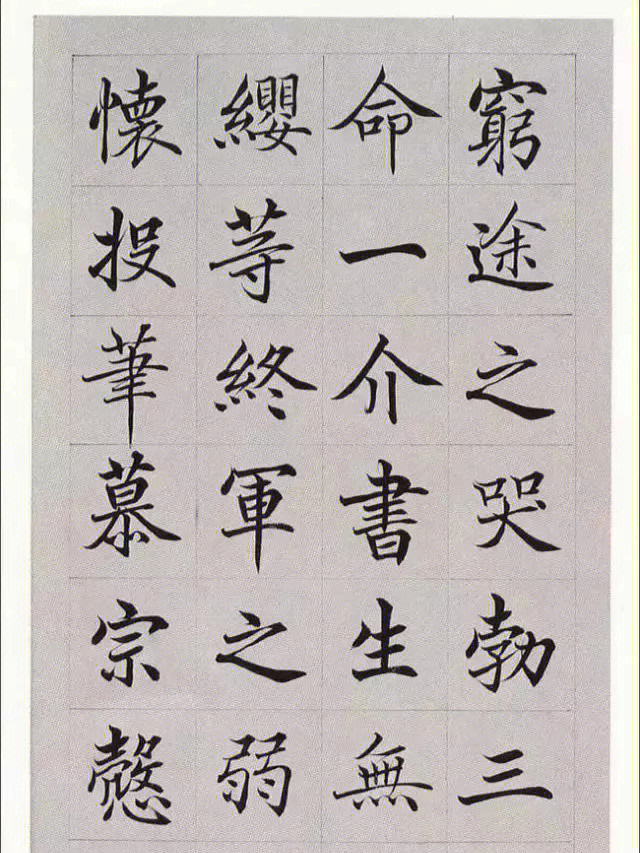 窮途之哭勃三
命一介書生無
纓等終軍之弱
懐投筆慕宗慤